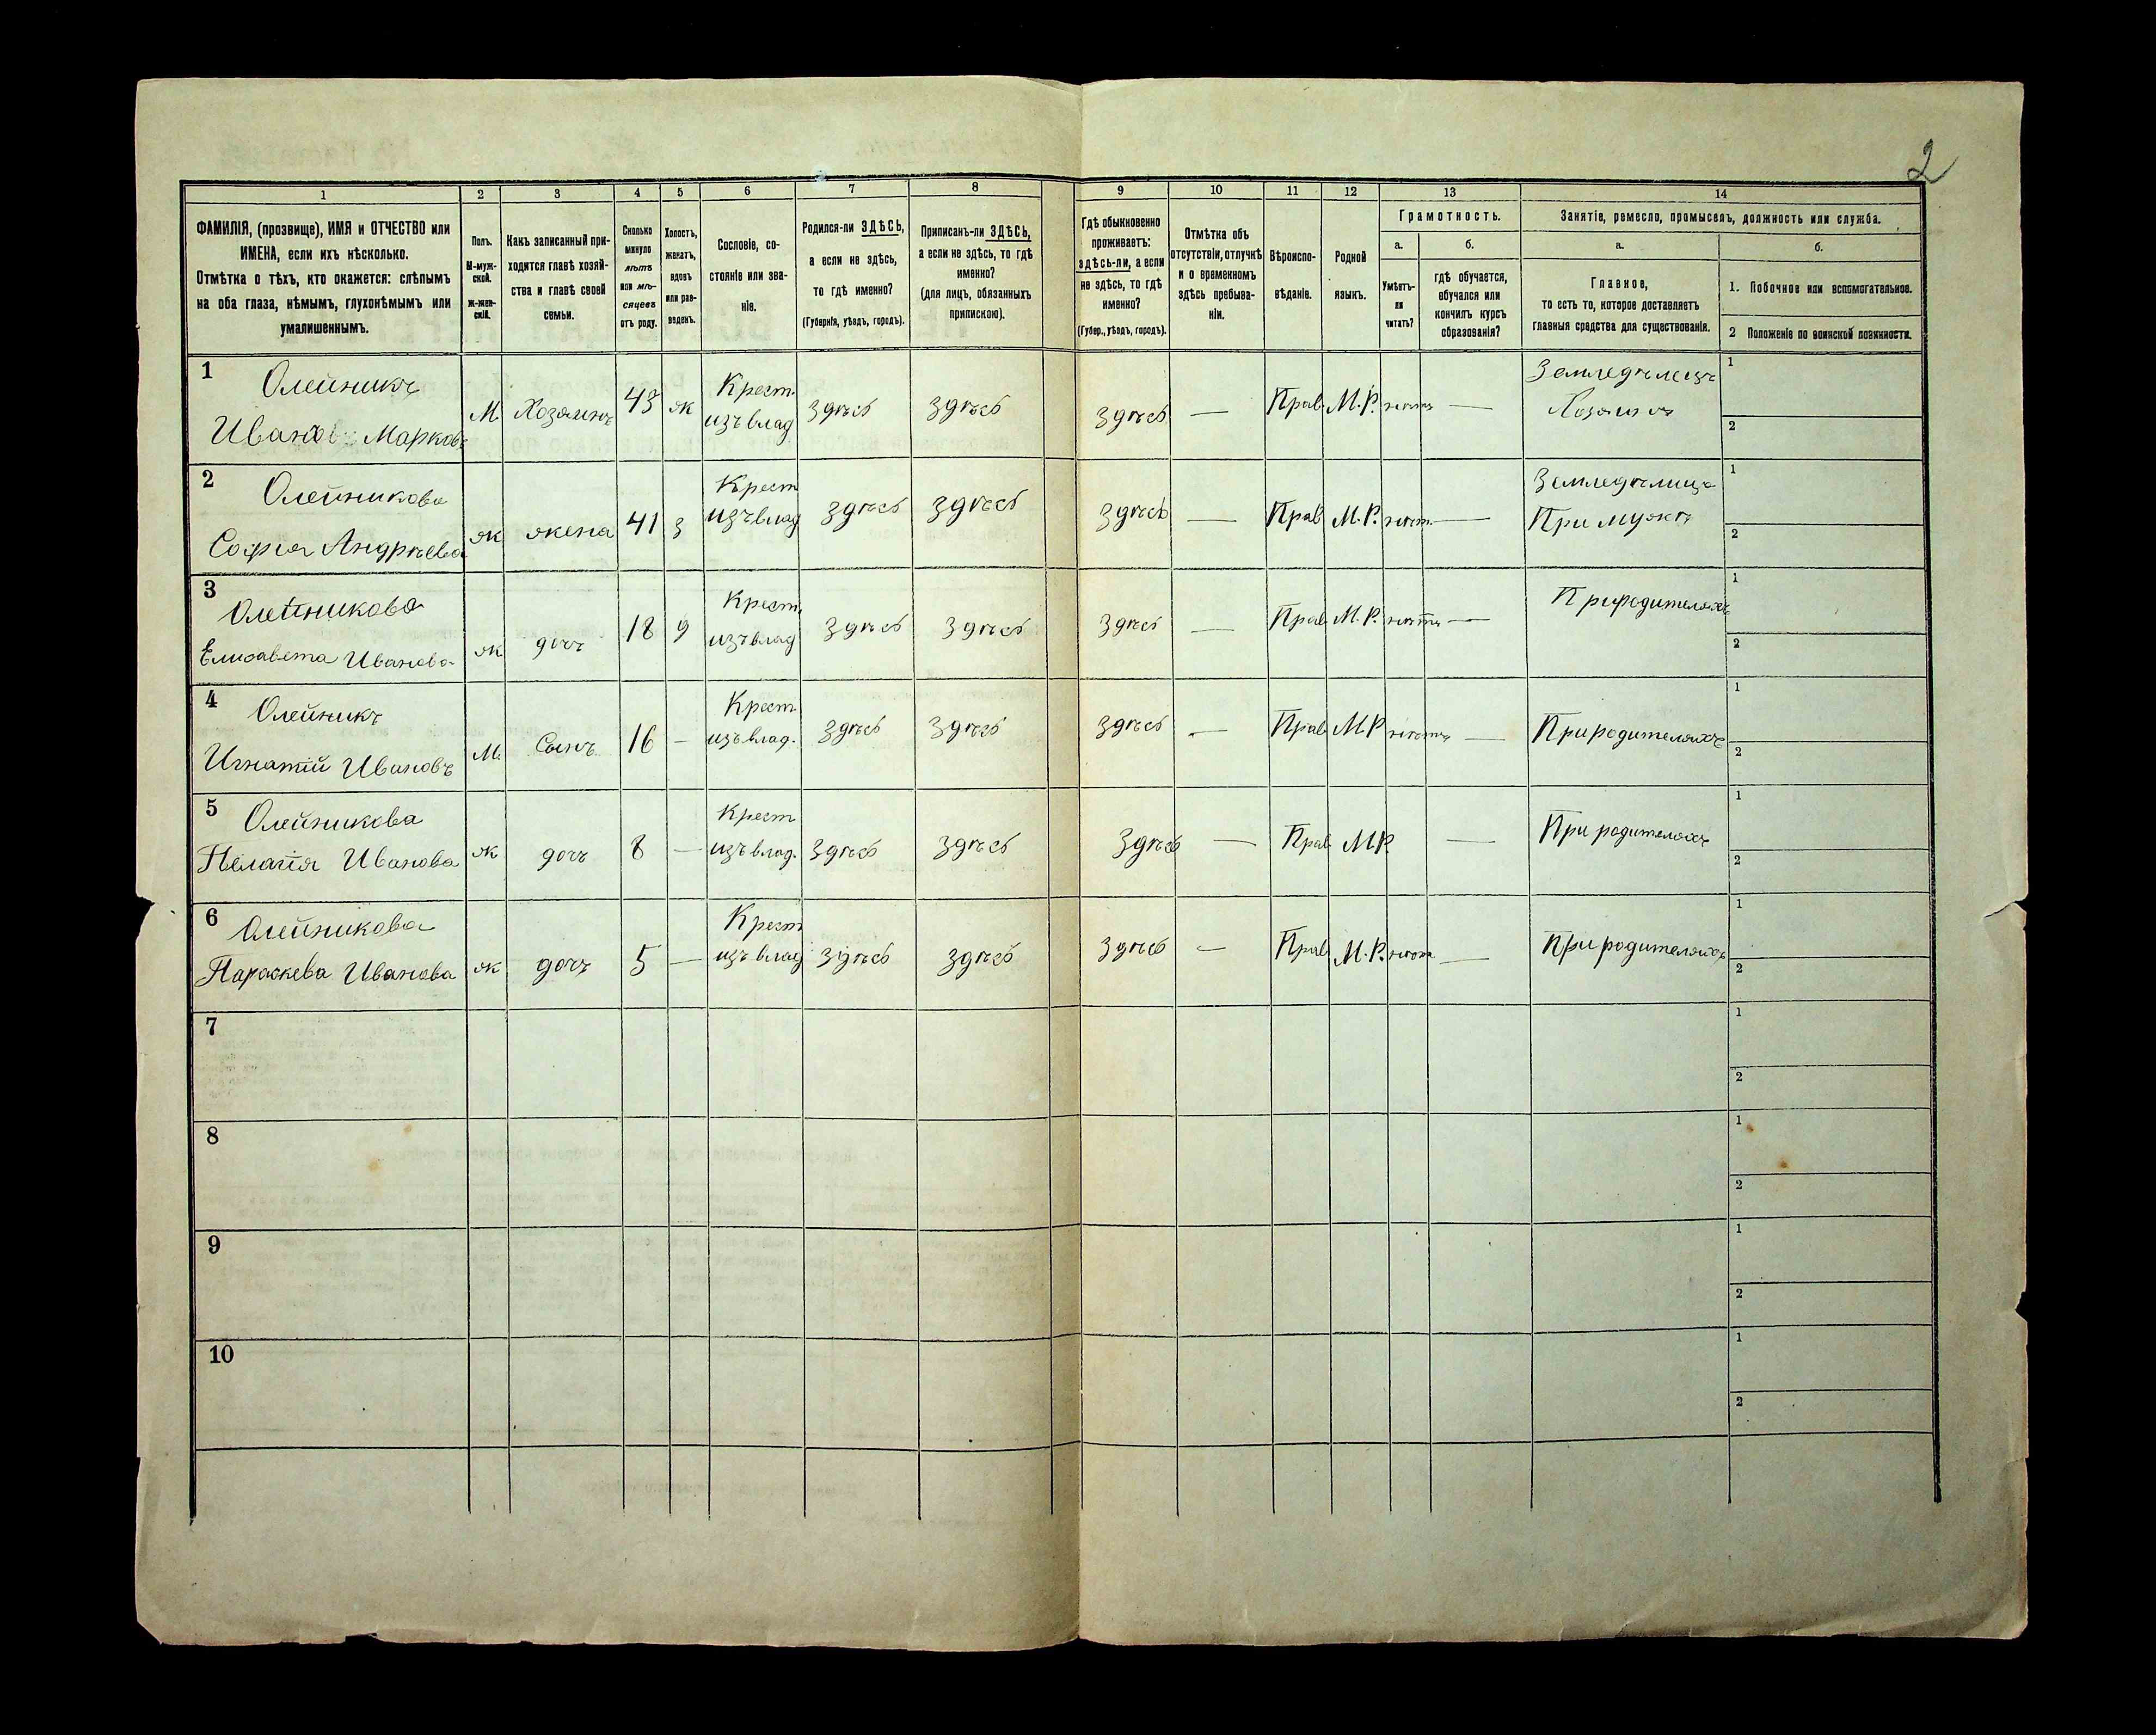 2
1 2 3 4 5 6 7 8 9 10 11 12 13 14
ФАМИЛІЯ, (прозвище), ИМЯ и ОТЧЕСТВО или
ИМЕНА, если ихъ нѣсколько.
Отмѣтка о тѣхъ, кто окажется: слѣпымъ
на оба глаза, нѣмымъ, глухонѣмымъ или
умалишеннымъ.
Полъ.
М-муж-
ской.
ж-жен-
скій.
Какъ записанный при-
ходится главѣ хозяй-
ства и главѣ своей
семьи.
Сколько
минуло
лѣтъ
или мѣ-
сяцевъ
отъ роду.
Холостъ,
женатъ,
вдовъ
или раз-
веденъ.
Сословіе, со-
стояніе или зва-
ніе.
Родился-ли ЗДѢСЬ,
а если не здѣсь,
то гдѣ именно?
(Губернія, уѣздъ, городъ).
Приписанъ-ли ЗДѢСЬ,
а если не здѣсь, то гдѣ
именно?
(для лицъ, обязанныхъ
припискою).
Гдѣ обыкновенно
проживаетъ:
здѣсь-ли, а если
не здѣсь, то гдѣ
именно?
(Губер., уѣздъ, городъ).
Отмѣтка объ
отсутствіи, отлучкѣ
и о временномъ
здѣсь пребыва-
ніи.
Вѣроиспо-
вѣданіе.
Родной
языкъ.
Грамотность.
а.
Умѣетъ-
ли
читать?
б.
гдѣ обучается,
обучался или
кончилъ курсъ
образованія?
Занятіе, ремесло, промыселъ, должность или служба.
а.
Главное,
то есть то, которое доставляетъ
главныя средства для существованія.
б.
1. Побочное или вспомогательное.
2 Положеніе по воинской повинности.
1 Олейникъ Крест. Земледѣлецъ 1
Иванъ Марковъ М. Хозяинъ 43 ж изъ влад здѣсь здѣсь здѣсь — Прав. М.Р. нѣтъ — Хозяинъ 2
2 Олейникова Крест Земледѣлица 1
Софія Андрѣева ж жена 41 з изъ влад здѣсь здѣсь здѣсь — Прав М.Р. нѣт. — При мужѣ 2
3 Олейникова Крест. При родителяхъ 1
Елисавета Иванова ж дочь 18 д изъ влад здѣсь здѣсь здѣсь — Прав М.Р. нѣтъ — 2
4 Олейникъ Крест 1
Игнатій Ивановъ М. Сынъ 16 — изъ влад. здѣсь здѣсь здѣсь — Прав М.Р. нѣтъ — При родителяхъ 2
5 Олейникова Крест 1
Пелагія Иванова ж дочь 8 — изъ влад. здѣсь здѣсь здѣсь — Прав МР — При родителяхъ 2
6 Олейникова Крест 1
Параскева Иванова ж дочь 5 — изъ влад здѣсь здѣсь здѣсь — Прав М.Р. нѣтъ — При родителяхъ 2
7 1
2
8 1
2
9 1
2
10 1
2